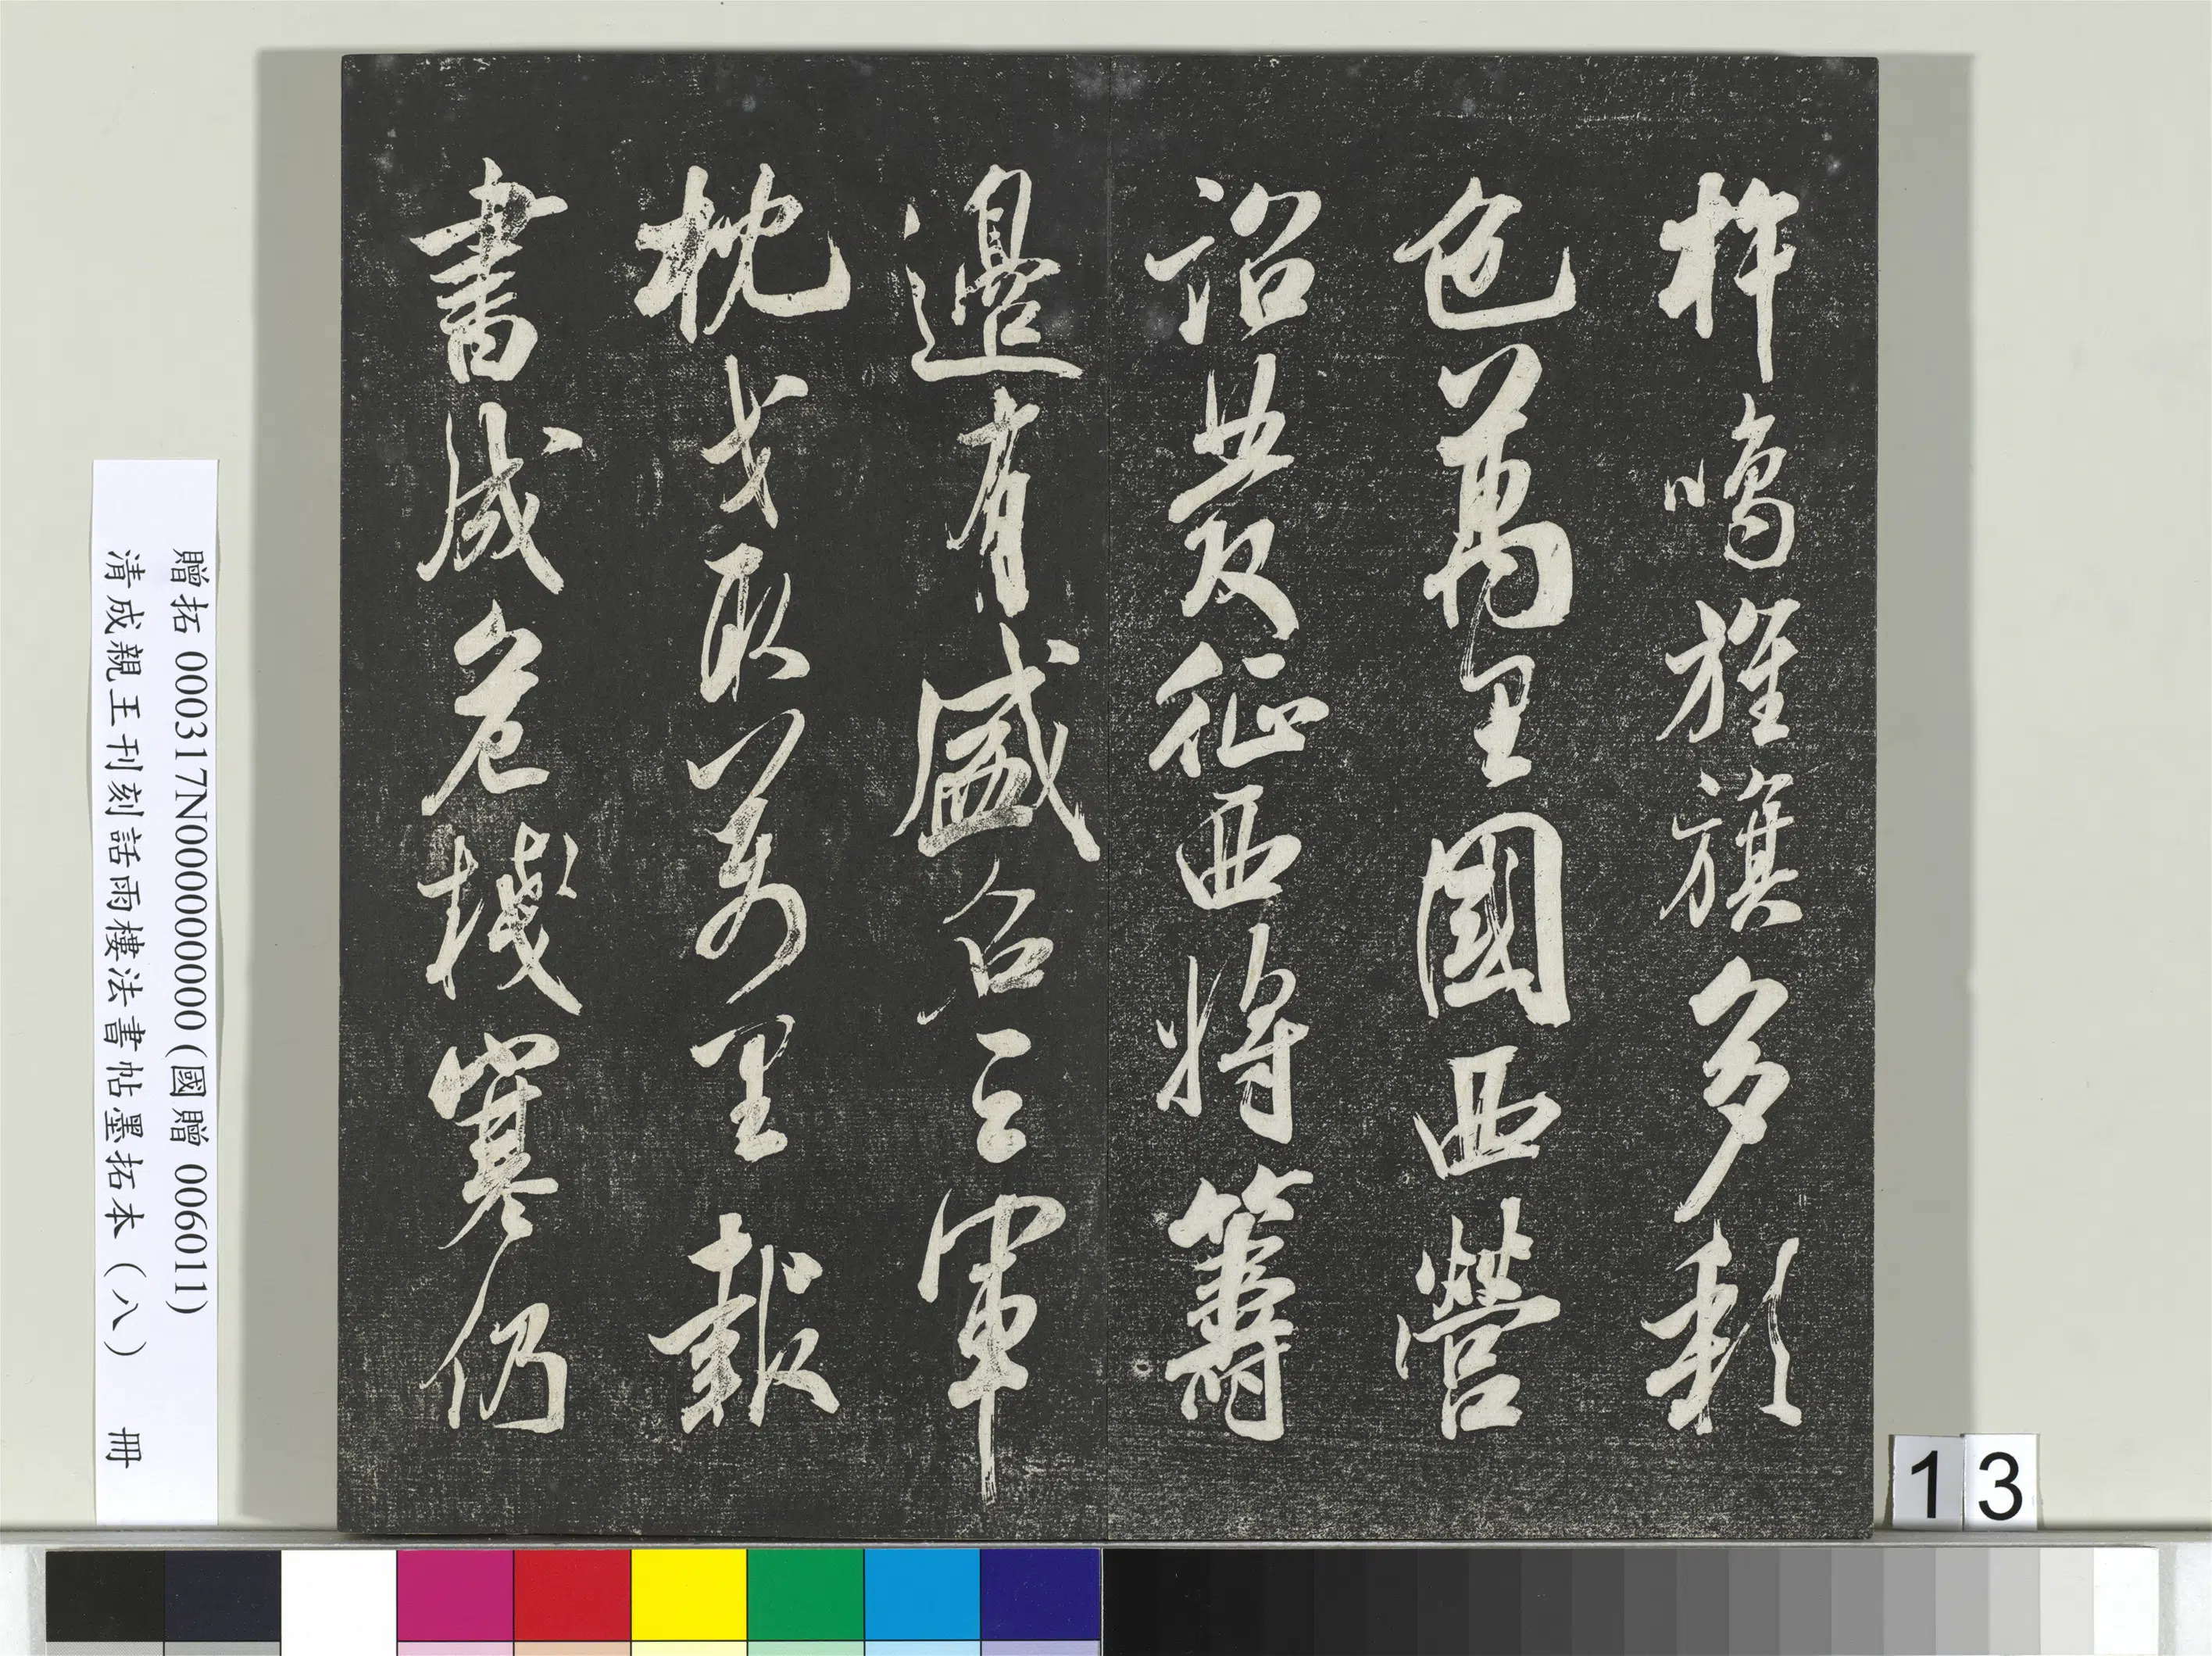 柝鳴旌旗多彩
色萬里國西營
詔發征西將籌
邊有盛名三軍
枕戈臥萬里報
書成危棧寒仍
贈拓 000317N000000000 (國贈 006011)
清成親王刊刻話雨樓法書帖墨拓本（八） 冊
13